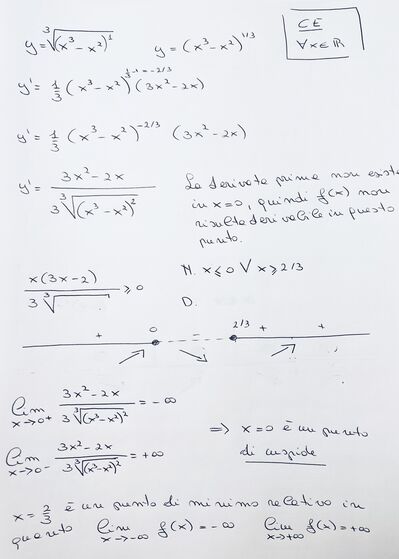 y = ∛(x³-x²)¹   y = (x³-x²)^1/3   CE ∀x∈ℝ
y' = 1/3 (x³-x²)^1/3-1=-2/3 (3x²-2x)
y' = 1/3 (x³-x²)^-2/3 (3x²-2x)
y' = (3x²-2x) / (3∛(x³-x²)²)
La derivata prima non esiste
in x=0, quindi f(x) non
risulta derivabile in questo
punto.
x(3x-2) / 3∛ ≥ 0   N. x≤0 ∨ x≥2/3
D.
+ 0 - 2/3 + +
lim x→0+ (3x²-2x) / (3∛(x³-x²)²) = -∞
lim x→0- (3x²-2x) / (3∛(x³-x²)²) = +∞
⇒ x=0 è un punto
di cuspide
x = 2/3 è un punto di minimo relativo in
quanto lim x→-∞ f(x) = -∞   lim x→+∞ f(x) = +∞